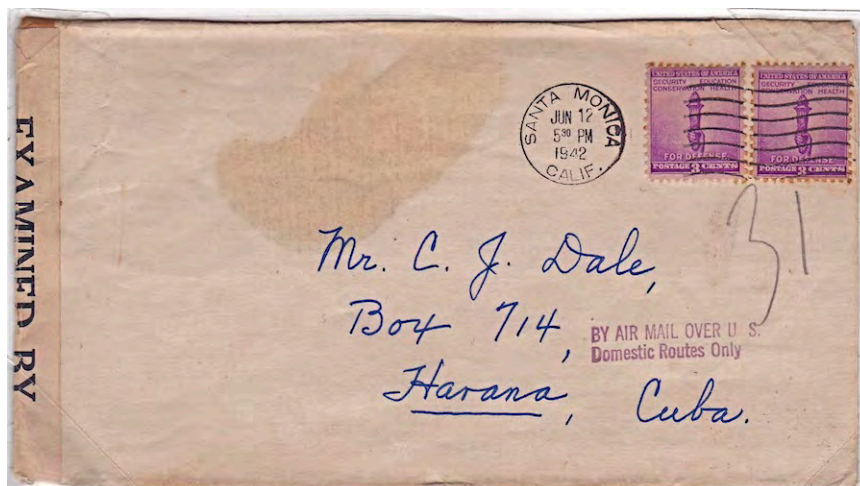 EXAMINED BY
SANTA MONICA
JUN 12
5 30 PM
1942
CALIF.
UNITED STATES OF AMERICA
SECURITY EDUCATION
CONSERVATION HEALTH
FOR DEFENSE
POSTAGE 3 CENTS
UNITED STATES OF AMERICA
SECURITY EDUCATION
CONSERVATION HEALTH
FOR DEFENSE
POSTAGE 3 CENTS
3.1
Mr. C. J. Dale,
Box 714,
Havana, Cuba.
BY AIR MAIL OVER U. S.
Domestic Routes Only